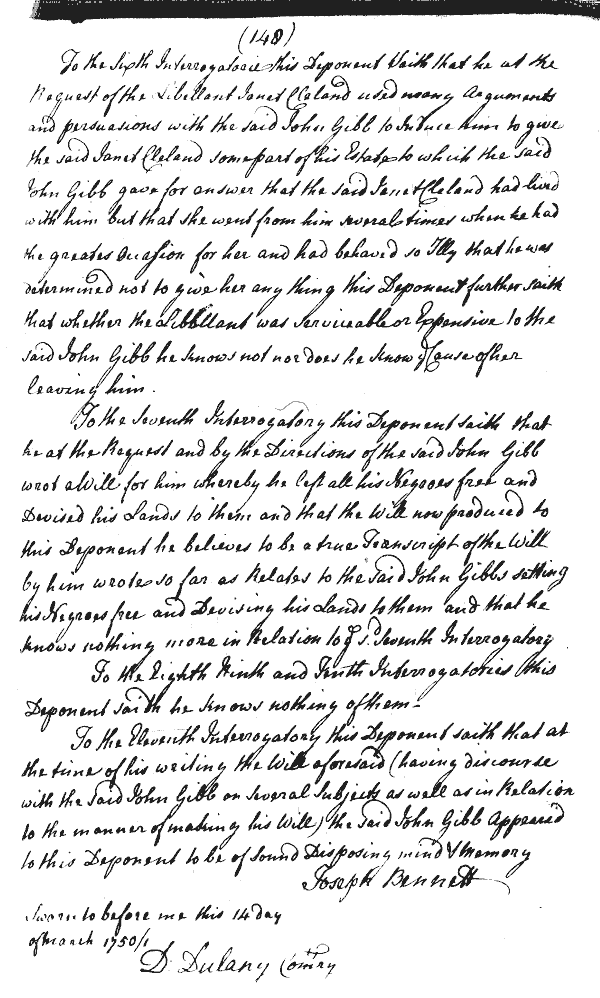 (148)
To the Sixth Interrogatorie this Deponent Saith that he at the
Request of the Libellant Janet Cleland used many Arguments
and persuasions with the said John Gibb to Induce him to give
the said Janet Cleland some part of his Estate to which the said
John Gibb gave for answer that the said Janet Cleland had lived
with him but that she went from him several times when he had
the greates Occasion for her and had behaved so Illy that he was
determined not to give her any thing this Deponent further saith
that whether the Libbllant was serviceable or Expensive to the
said John Gibb he knows not nor does he know ye Cause of her
leaving him.
To the Seventh Interrogatory this Deponent saith that
he at the Request and by the Directions of the said John Gibb
wrot a Will for him whereby he left all his Negroes free and
Devised his Lands to them and that the Will now produced to
this Deponent he believes to be a true Transcript of the Will
by him wrote so far as Relates to the said John Gibbs setting
his Negroes free and Devising his Lands to them and that he
knows nothing more in Relation to ye sd. Seventh Interrogatory
To the Eighth Ninth and Tenth Interrogatories this
Deponent saith he knows nothing of them-
To the Eleventh Interrogatory this Deponent saith that at
the time of his writing the Will aforesaid (having discourse
with the said John Gibb on several Subjects as well as in Relation
to the manner of making his Will) the said John Gibb Appeared
to this Deponent to be of sound Disposing mind & Memory
Joseph Bennett
Sworn to before me this 14 day
of March 1750/1
D. Dulany Comry